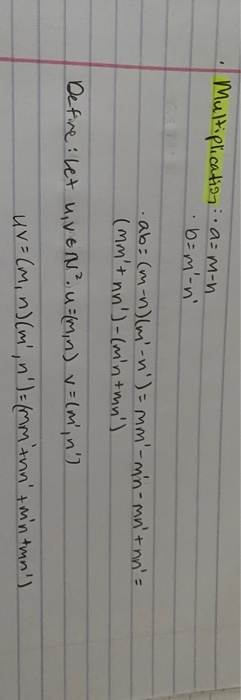 · Multiplication: · a = m-n
· b = m'-n'
· ab = (m-n)(m'-n') = mm' - m'n - mn' + nn' =
(mm' + nn') - (m'n + mn')
Define: Let u,v ∈ N². u = (m,n) v = (m',n')
uv = (m,n)(m',n') = (mm' + nn' + m'n + mn')